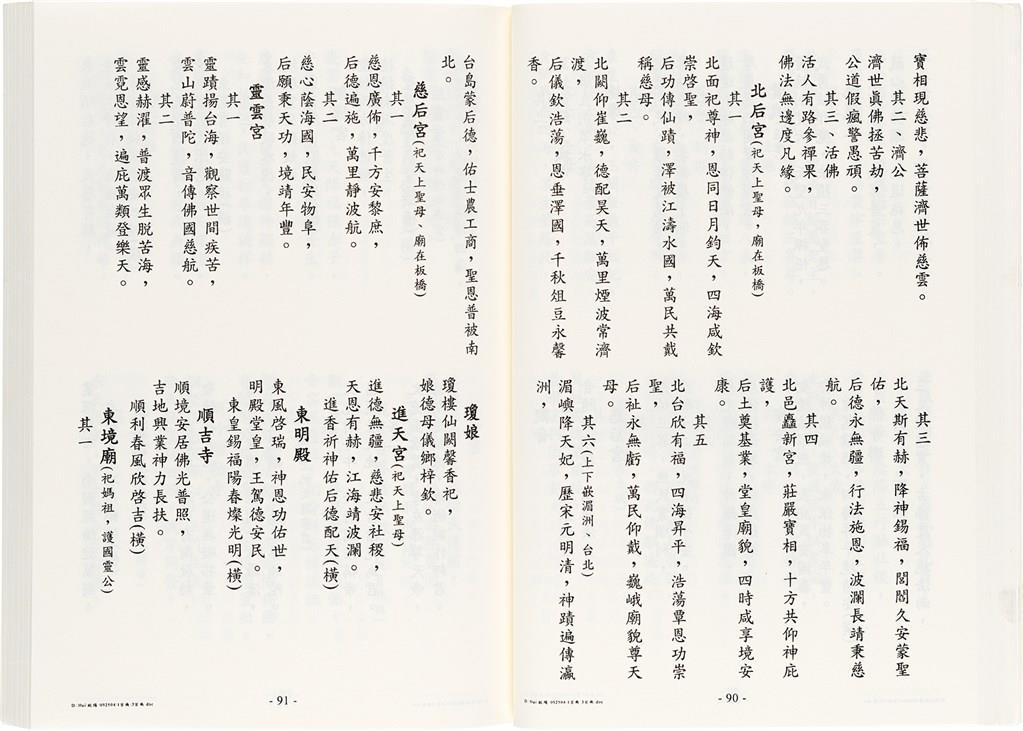 寶相現慈悲，菩薩濟世佈慈雲。
其二、濟公
濟世眞佛拯苦劫，
公道假瘋警愚頑。
其三、活佛
活人有路參禪果，
佛法無邊度凡緣。
北后宮(祀天上聖母，廟在板橋)
其一
北面祀尊神，恩同日月鈞天，四海咸欽
崇啓聖，
后功傳仙蹟，澤被江濤水國，萬民共戴
稱慈母。
其二
北闕仰崔巍，德配昊天，萬里煙波常濟
渡，
后儀欽浩蕩，恩垂澤國，千秋俎豆永馨
香。
其三
北天斯有赫，降神錫福，閭閻久安蒙聖
佑，
后德永無疆，行法施恩，波瀾長靖秉慈
航。
其四
北邑矗新宮，莊嚴寶相，十方共仰神庇
護，
后土奠基業，堂皇廟貌，四時咸享境安
康。
其五
北台欣有福，四海昇平，浩蕩覃恩功崇
聖，
后祉永無虧，萬民仰戴，巍峨廟貌尊天
母。
其六(上下嵌湄洲、台北)
湄嶼降天妃，歷宋元明清，神蹟遍傳瀛
洲，
- 90 -
台島蒙后德，佑士農工商，聖恩普被南
北。
慈后宮(祀天上聖母、廟在板橋)
其一
慈恩廣佈，千方安黎庶，
后德遍施，萬里靜波航。
其二
慈心蔭海國，民安物阜，
后願秉天功，境靖年豐。
靈雲宮
其一
靈蹟揚台海，觀察世間疾苦，
雲山蔚普陀，音傳佛國慈航。
其二
靈感赫濯，普渡眾生脱苦海，
雲霓恩望，遍庇萬類登樂天。
瓊娘
瓊樓仙闕馨香祀，
娘德母儀鄉梓欽。
進天宮(祀天上聖母)
進德無疆，慈悲安社稷，
天恩有赫，江海靖波瀾。
進香祈神佑后德配天(橫)
東明殿
東風啓瑞，神恩功佑世，
明殿堂皇，王駕德安民。
東皇錫福陽春燦光明(橫)
順吉寺
順境安居佛光普照，
吉地興業神力長扶。
順利春風欣啓吉(橫)
東境廟(祀媽祖，護國靈公)
其一
- 91 -